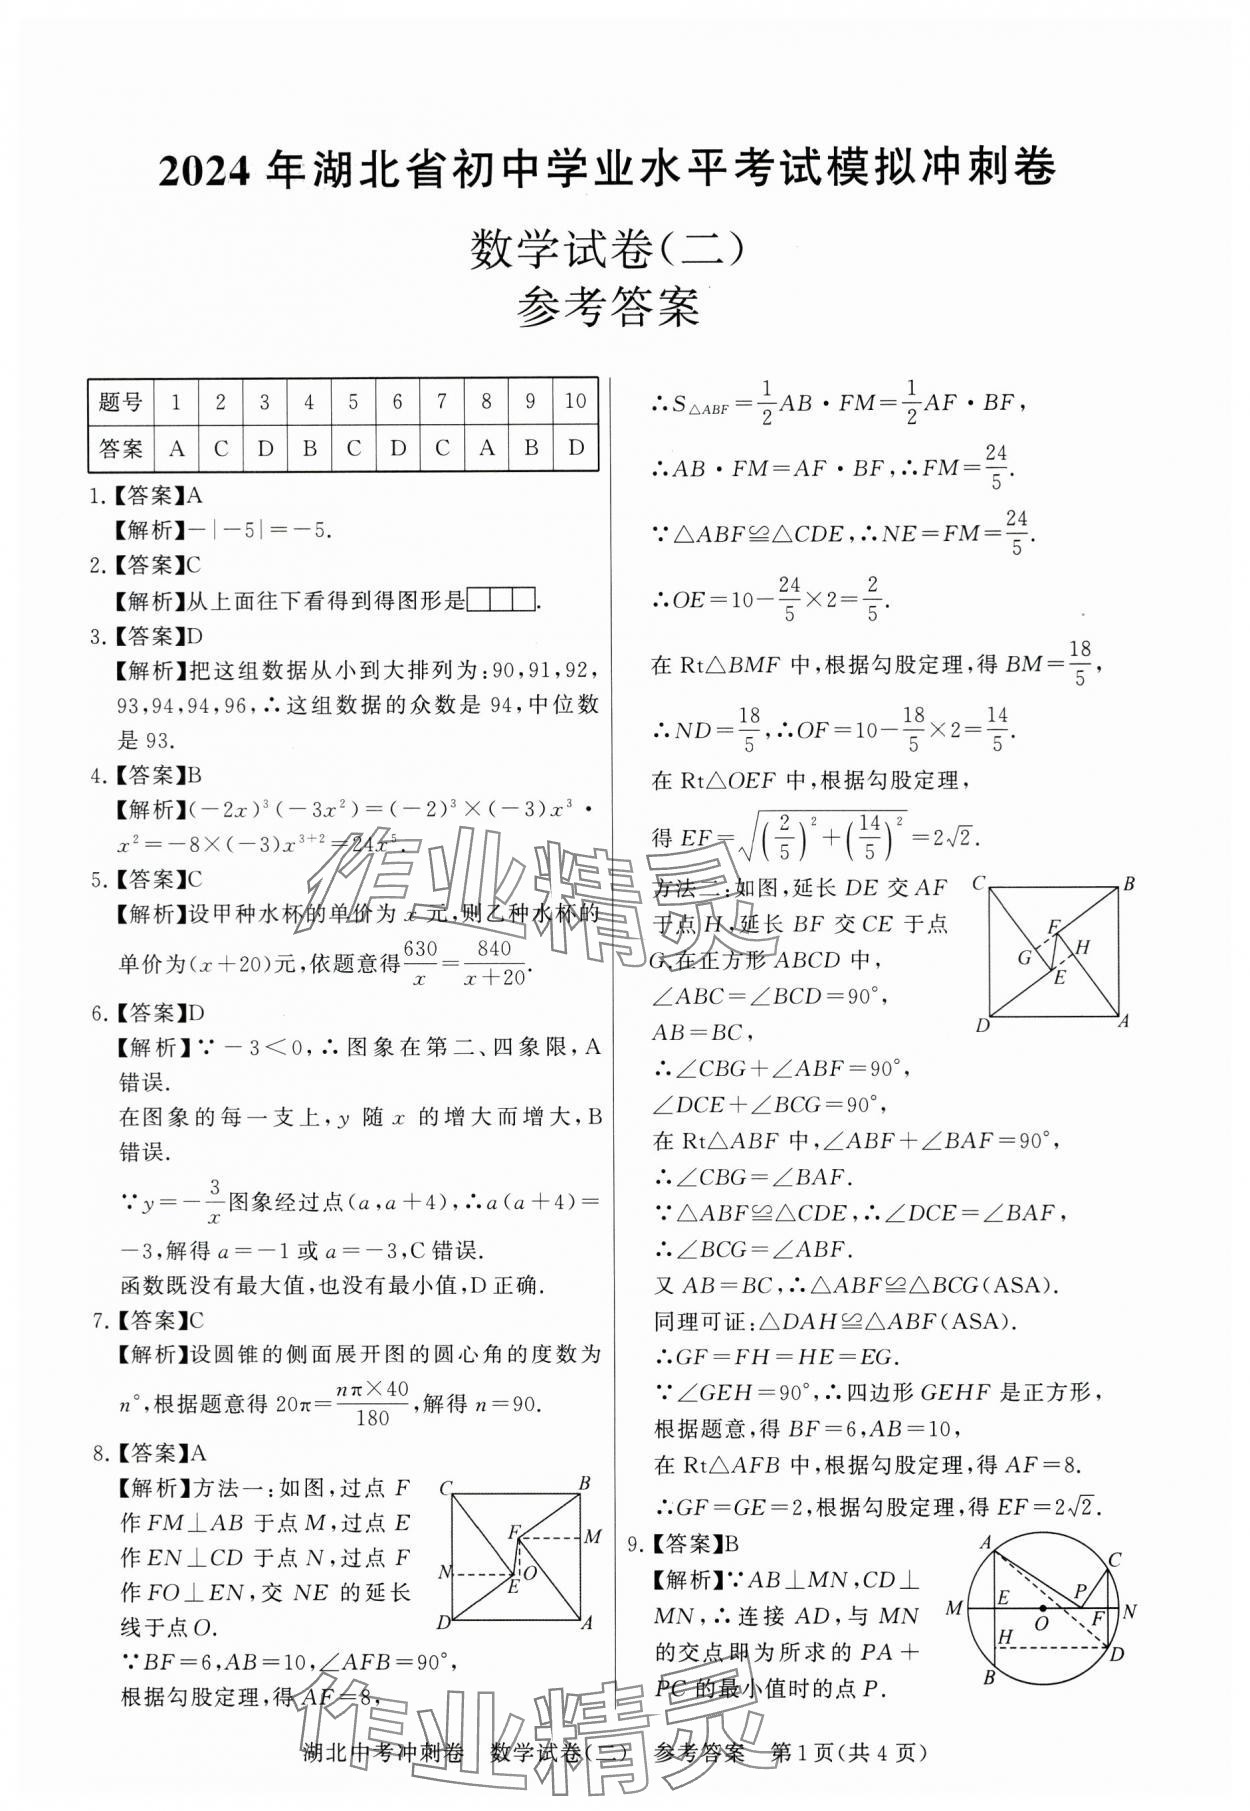 2024 年湖北省初中学业水平考试模拟冲刺卷
数学试卷(二)
参考答案
题号 1 2 3 4 5 6 7 8 9 10
答案 A C D B C D C A B D
1.【答案】A
【解析】-|-5|=-5.
2.【答案】C
【解析】从上面往下看得到得图形是□□□.
3.【答案】D
【解析】把这组数据从小到大排列为:90,91,92,
93,94,94,96,∴这组数据的众数是 94,中位数
是 93.
4.【答案】B
【解析】(-2x)³(-3x²)=(-2)³×(-3)x³·
x²=-8×(-3)x³⁺²=24x⁵.
5.【答案】C
【解析】设甲种水杯的单价为 x 元,则乙种水杯的
单价为(x+20)元,依题意得630/x=840/(x+20).
6.【答案】D
【解析】∵-3<0,∴图象在第二、四象限,A
错误.
在图象的每一支上,y 随 x 的增大而增大,B
错误.
∵y=-3/x图象经过点(a,a+4),∴a(a+4)=
-3,解得 a=-1 或 a=-3,C 错误.
函数既没有最大值,也没有最小值,D 正确.
7.【答案】C
【解析】设圆锥的侧面展开图的圆心角的度数为
n°,根据题意得 20π=nπ×40/180,解得 n=90.
8.【答案】A
【解析】方法一:如图,过点 F
作 FM⊥AB 于点 M,过点 E
作 EN⊥CD 于点 N,过点 F
作 FO⊥EN,交 NE 的延长
线于点 O.
C B F M N E O D A
∵BF=6,AB=10,∠AFB=90°,
根据勾股定理,得 AF=8,
∴S△ABF=1/2AB·FM=1/2AF·BF,
∴AB·FM=AF·BF,∴FM=24/5.
∵△ABF≌△CDE,∴NE=FM=24/5.
∴OE=10-24/5×2=2/5.
在 Rt△BMF 中,根据勾股定理,得 BM=18/5,
∴ND=18/5,∴OF=10-18/5×2=14/5.
在 Rt△OEF 中,根据勾股定理,
得 EF=√((2/5)²+(14/5)²)=2√2.
方法二:如图,延长 DE 交 AF
于点 H,延长 BF 交 CE 于点
G,在正方形 ABCD 中,
∠ABC=∠BCD=90°,
AB=BC,
C B F G H E D A
∴∠CBG+∠ABF=90°,
∠DCE+∠BCG=90°,
在 Rt△ABF 中,∠ABF+∠BAF=90°,
∴∠CBG=∠BAF.
∵△ABF≌△CDE,∴∠DCE=∠BAF,
∴∠BCG=∠ABF.
又 AB=BC,∴△ABF≌△BCG(ASA).
同理可证:△DAH≌△ABF(ASA).
∴GF=FH=HE=EG.
∵∠GEH=90°,∴四边形 GEHF 是正方形,
根据题意,得 BF=6,AB=10,
在 Rt△AFB 中,根据勾股定理,得 AF=8.
∴GF=GE=2,根据勾股定理,得 EF=2√2.
9.【答案】B
【解析】∵AB⊥MN,CD⊥
MN,∴连接 AD,与 MN
的交点即为所求的 PA+
PC 的最小值时的点 P.
A C E P M O F N H D B
湖北中考冲刺卷 数学试卷(二) 参考答案 第 1 页(共 4 页)
作业精灵
作业精灵